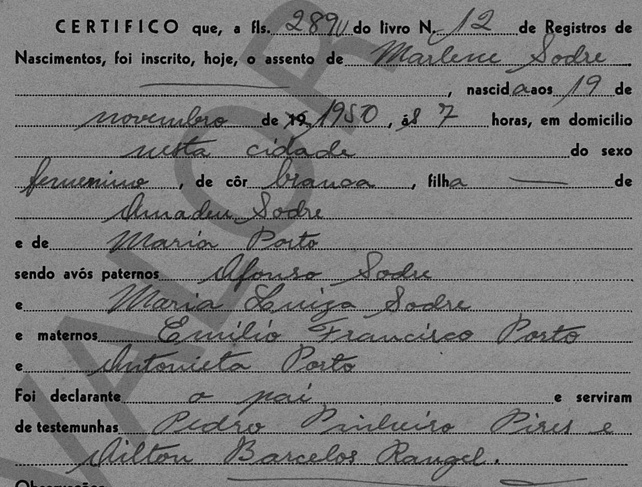 CERTIFICO que, a fls. 289v do livro N. 12 de Registros de
Nascimentos, foi inscrito, hoje, o assento de Marlene Sodre
, nascida aos 19 de
novembro de 19 1950, ás 7 horas, em domicilio
nesta cidade do sexo
femenino, de côr branca, filha — de
Amadeu Sodre
e de Maria Porto
sendo avós paternos Afonso Sodre
e Maria Luiza Sodre
e maternos Emilio Francisco Porto
e Antonieta Porto
Foi declarante o pai e serviram
de testemunhas Pedro Pinheiro Pires e
Ailton Barcelos Rangel.
Observações
VALOR